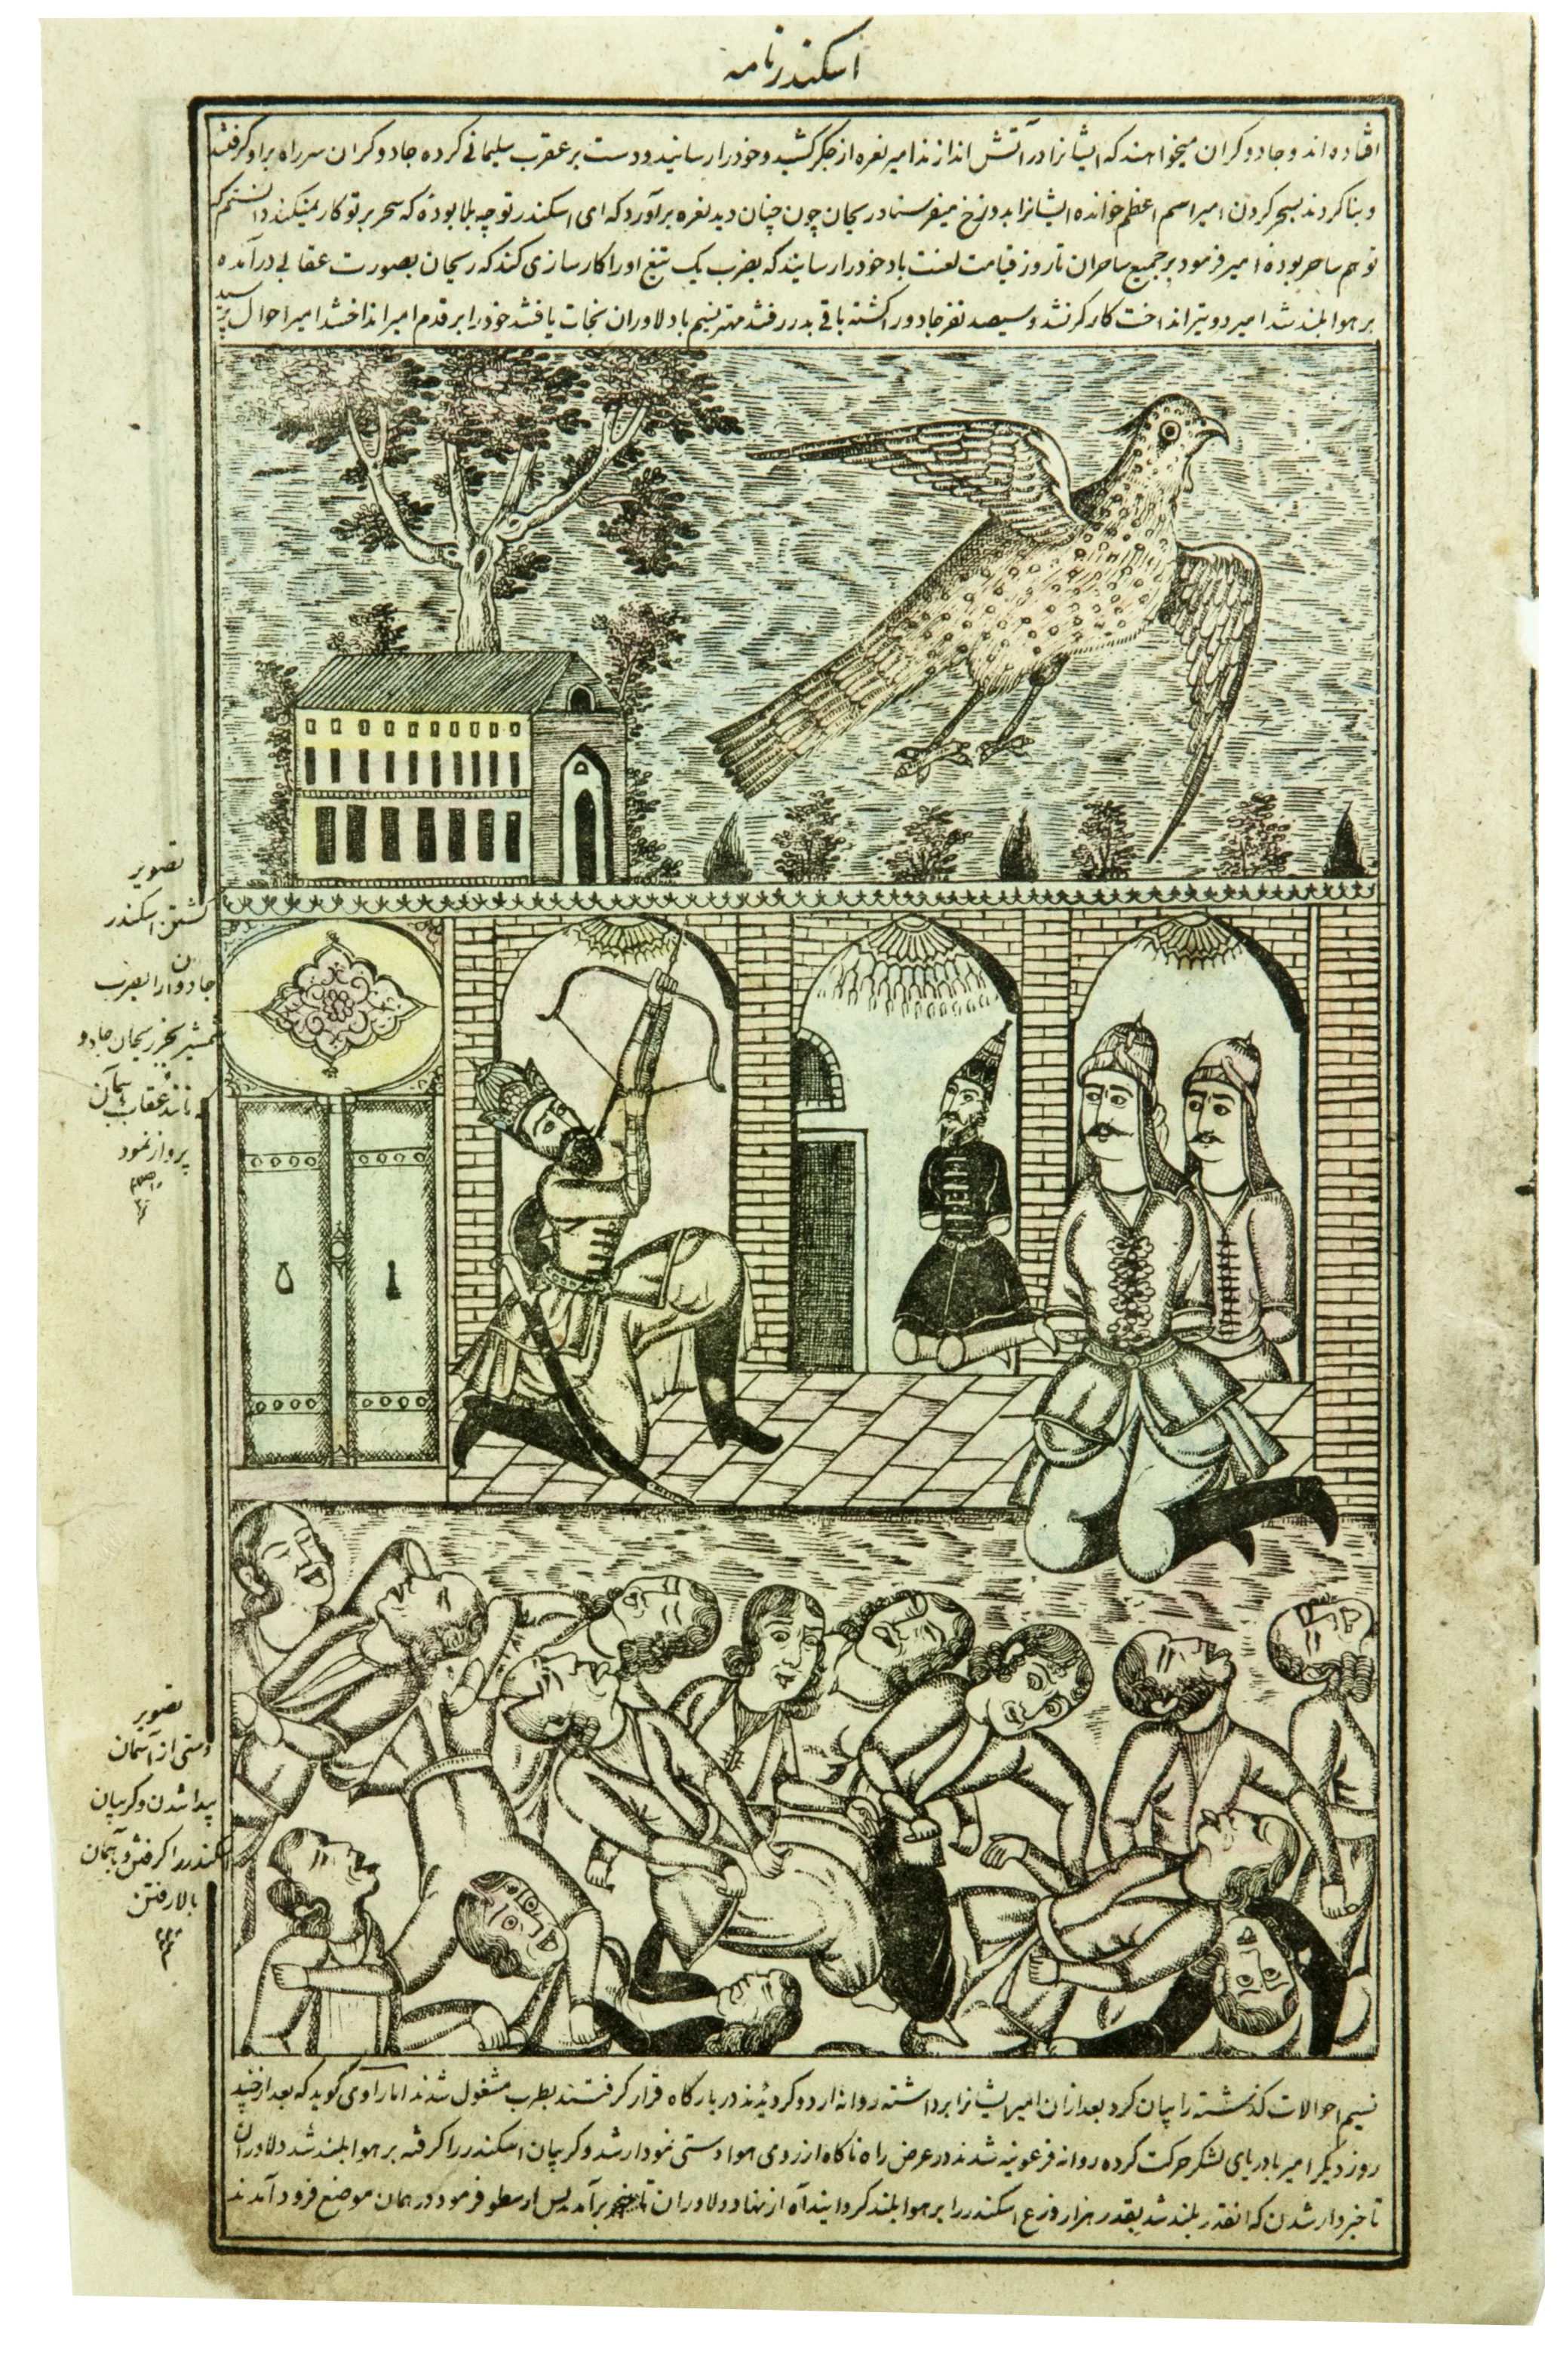 اسکندرنامه
افتاده‌اند و جادوکران میخواهند که ایشانرا در آتش اندازند امیر نعره از جکر کشید و خود را رسانید و دست بر عقرب سلیمانی کرده جادوکران سر راه بر او کرفتند
و بنا کردند بسحر کردن امیر اسم اعظم خوانده ایشانرا بدوزخ میفرستاد ریحان چون چنان دید نعره برآورد که ای اسکندر تو چه بلا بودهٔ که سحر بر تو کار نمیکند دانستم که
تو هم ساحر بودهٔ امیر فرمود بر جمیع ساحران تا روز قیامت لعنت باد خود را رسانید که بضرب یک تیغ او را کارسازی کند که ریحان بصورت عقابی درآمده
بر هوا بلند شد امیر دو تیر انداخت کارکر نشد و سیصد نفر جادو را کشته باقی بدر رفتند مهتر نسیم با دلاوران نجات یافتند خود را بر قدم امیر انداختند امیر احوال پرسید
تصویر
کشتن اسکندر
جادوانرا بضرب
شمشیر بجز ریحان جادو
که مانند عقاب بآسمان
پرواز نمود
تصویر
دستی از آسمان
پیدا شدن و کریبان
اسکندر را کرفتن و بآسمان
بالا رفتن
نسیم احوالات کذشته را بیان کرد بعد از ان امیر ایشانرا برداشته روانه اردو کردیدند در بارکاه قرار کرفتند بطرب مشغول شدند اما راوی کوید که بعد از چند
روز دیکر امیر با دریای لشکر حرکت کرده روانه فرعونیه شدند در عرض راه ناکاه از روی هوا دستی نمودار شد و کریبان اسکندر را کرفته بر هوا بلند شد دلاوران
تا خبردار شدن که انقدر بلند شد بقدر هزار ذرع اسکندر را بر هوا بلند کردانید آه از نهاد دلاوران برآمد پس ارسطو فرمود در همان موضع فرود آمدند